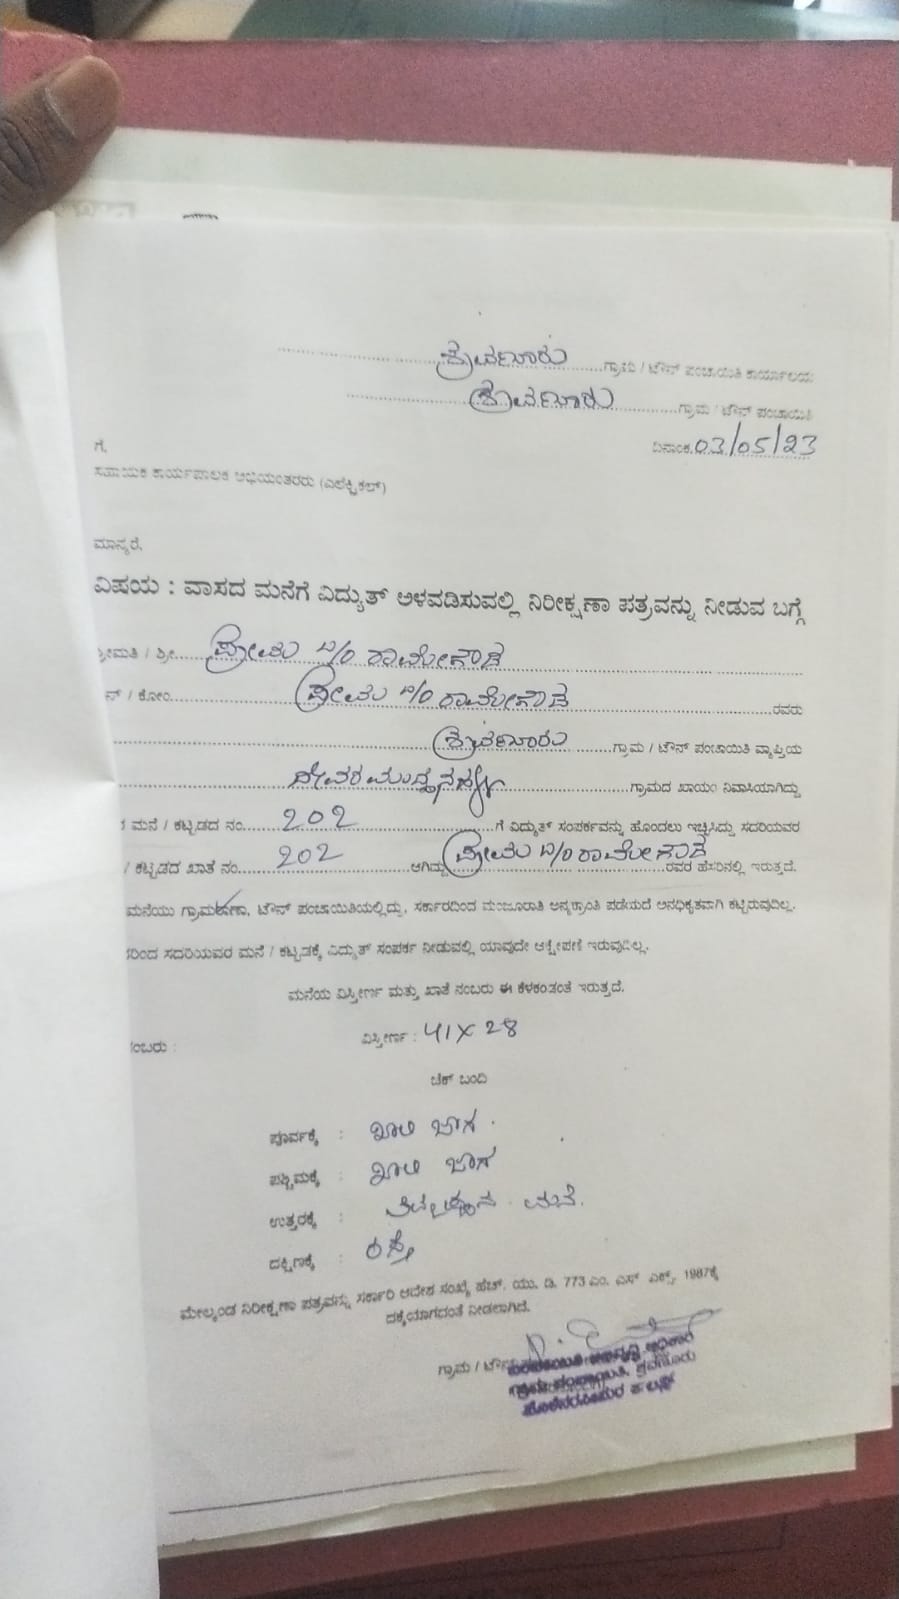 ಶ್ರವಣೂರು ಗ್ರಾಮ / ಟೌನ್ ಪಂಚಾಯಿತಿ ಕಾರ್ಯಾಲಯ
ಶ್ರವಣೂರು ಗ್ರಾಮ / ಟೌನ್ ಪಂಚಾಯಿತಿ
ದಿನಾಂಕ 03/05/23
ಗೆ,
ಸಹಾಯಕ ಕಾರ್ಯಪಾಲಕ ಅಭಿಯಂತರರು (ಎಲೆಕ್ಟ್ರಿಕಲ್)
ಮಾನ್ಯರೆ,
ವಿಷಯ : ವಾಸದ ಮನೆಗೆ ವಿದ್ಯುತ್ ಅಳವಡಿಸುವಲ್ಲಿ ನಿರೀಕ್ಷಣಾ ಪತ್ರವನ್ನು ನೀಡುವ ಬಗ್ಗೆ
ಶ್ರೀಮತಿ / ಶ್ರೀ
ನ್ / ಕೋಂ ರವರು
ಶ್ರವಣೂರು ಗ್ರಾಮ / ಟೌನ್ ಪಂಚಾಯಿತಿ ವ್ಯಾಪ್ತಿಯ
ದೇವರಮುದ್ದನಹಳ್ಳಿ ಗ್ರಾಮದ ಖಾಯಂ ನಿವಾಸಿಯಾಗಿದ್ದು
ಮನೆ / ಕಟ್ಟಡದ ನಂ. 202 ಗೆ ವಿದ್ಯುತ್ ಸಂಪರ್ಕವನ್ನು ಹೊಂದಲು ಇಚ್ಛಿಸಿದ್ದು ಸದರಿಯವರ
/ ಕಟ್ಟಡದ ಖಾತೆ ನಂ. 202 ಆಗಿದ್ದು ರವರ ಹೆಸರಿನಲ್ಲಿ ಇರುತ್ತದೆ.
ಮನೆಯು ಗ್ರಾಮಠಾಣಾ, ಟೌನ್ ಪಂಚಾಯಿತಿಯಲ್ಲಿದ್ದು, ಸರ್ಕಾರದಿಂದ ಮಂಜೂರಾತಿ ಅನ್ಯಕ್ರಾಂತಿ ಪಡೆಯದೆ ಅನಧಿಕೃತವಾಗಿ ಕಟ್ಟಿರುವುದಿಲ್ಲ.
ಸದರಿಯವರ ಮನೆ / ಕಟ್ಟಡಕ್ಕೆ ವಿದ್ಯುತ್ ಸಂಪರ್ಕ ನೀಡುವಲ್ಲಿ ಯಾವುದೇ ಆಕ್ಷೇಪಣೆ ಇರುವುದಿಲ್ಲ.
ಮನೆಯ ವಿಸ್ತೀರ್ಣ ಮತ್ತು ಖಾತೆ ನಂಬರು ಈ ಕೆಳಕಂಡಂತೆ ಇರುತ್ತದೆ.
ನಂಬರು : ವಿಸ್ತೀರ್ಣ : 41 X 28
ಚೆಕ್ ಬಂದಿ
ಪೂರ್ವಕ್ಕೆ : ಖಾಲಿ ಜಾಗ
ಪಶ್ಚಿಮಕ್ಕೆ : ಖಾಲಿ ಜಾಗ
ಉತ್ತರಕ್ಕೆ : ಮನೆ.
ದಕ್ಷಿಣಕ್ಕೆ : ರಸ್ತೆ
ಮೇಲ್ಕಂಡ ನಿರೀಕ್ಷಣಾ ಪತ್ರವನ್ನು ಸರ್ಕಾರಿ ಆದೇಶ ಸಂಖ್ಯೆ ಹೆಚ್. ಯು. ಡಿ. 773 ಎಂ. ಎಸ್ ಎಕ್ಸ್, 1987ಕ್ಕೆ
ದಕ್ಕೆಯಾಗದಂತೆ ನೀಡಲಾಗಿದೆ.
ಗ್ರಾಮ / ಟೌನ್
ಗ್ರಾಮ ಪಂಚಾಯಿತಿ, ಶ್ರವಣೂರು